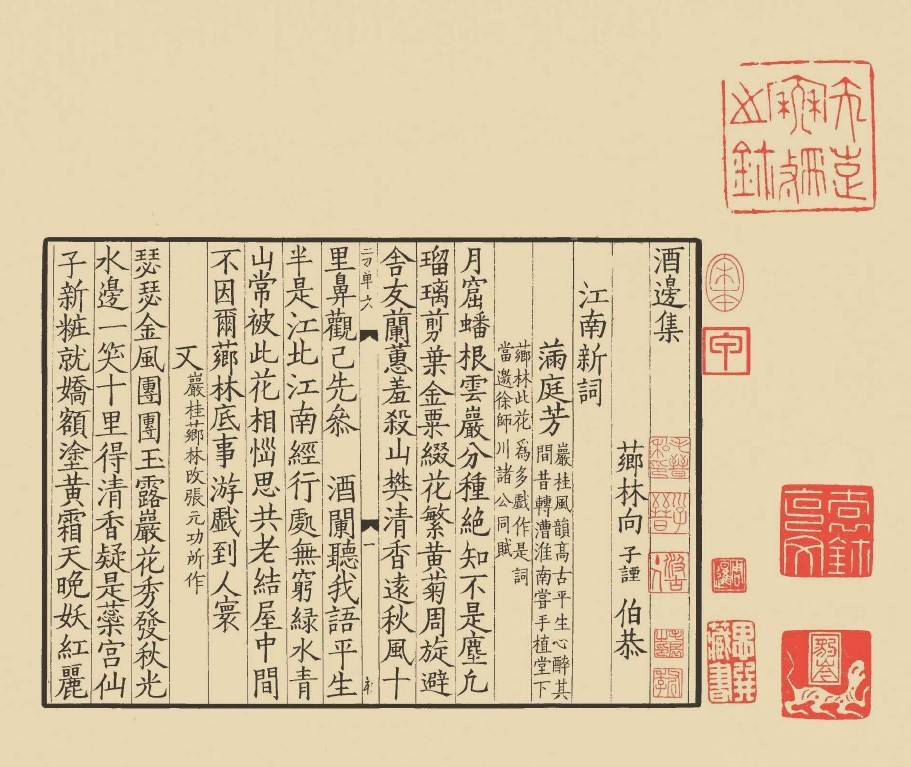 酒邊集
薌林向 子諲 伯恭
江南新詞
滿庭芳
巖桂風韻髙古平生心醉其
間昔轉漕淮南嘗手植堂下
薌林此花爲多戲作是詞
當邀徐師川諸公同賦
月窟蟠根雲巖分種絶知不是塵凢
瑠璃剪葉金粟綴花繁黄菊周旋避
舍友蘭蕙羞殺山樊清香遠秋風十
一
里鼻觀己先叅 酒闌聽我語平生
半是江北江南經行處無窮緑水青
山常被此花相惱思共老結屋中間
不因爾薌林底事游戲到人寰
又 巖桂薌林改張元功所作
瑟瑟金風團團玉露巖花秀發秋光
水邊一笑十里得清香疑是蘂宫仙
子新粧就嬌額塗黄霜天晚妖紅麗
宋本
甲
周暹